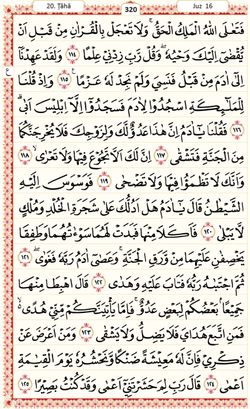 20. Ṭāhā 320 Juz 16
فَتَعٰلَى اللّٰهُ الْمَلِكُ الْحَقُّ ۚ وَلَا تَعْجَلْ بِالْقُرْاٰنِ مِنْ قَبْلِ اَنْ
يُّقْضٰٓى اِلَيْكَ وَحْيُهٗ ۖ وَقُلْ رَّبِّ زِدْنِيْ عِلْمًا ﴿١١٤﴾ وَلَقَدْ عَهِدْنَآ
اِلٰٓى اٰدَمَ مِنْ قَبْلُ فَنَسِيَ وَلَمْ نَجِدْ لَهٗ عَزْمًا ﴿١١٥﴾ وَاِذْ قُلْنَا
لِلْمَلٰٓئِكَةِ اسْجُدُوْا لِاٰدَمَ فَسَجَدُوْٓا اِلَّآ اِبْلِيْسَ ۗ اَبٰى
﴿١١٦﴾ فَقُلْنَا يٰٓاٰدَمُ اِنَّ هٰذَا عَدُوٌّ لَّكَ وَلِزَوْجِكَ فَلَا يُخْرِجَنَّكُمَا
مِنَ الْجَنَّةِ فَتَشْقٰى ﴿١١٧﴾ اِنَّ لَكَ اَلَّا تَجُوْعَ فِيْهَا وَلَا تَعْرٰى ﴿١١٨﴾
وَاَنَّكَ لَا تَظْمَؤُا فِيْهَا وَلَا تَضْحٰى ﴿١١٩﴾ فَوَسْوَسَ اِلَيْهِ
الشَّيْطٰنُ قَالَ يٰٓاٰدَمُ هَلْ اَدُلُّكَ عَلٰى شَجَرَةِ الْخُلْدِ وَمُلْكٍ
لَّا يَبْلٰى ﴿١٢٠﴾ فَاَكَلَا مِنْهَا فَبَدَتْ لَهُمَا سَوْاٰتُهُمَا وَطَفِقَا
يَخْصِفٰنِ عَلَيْهِمَا مِنْ وَّرَقِ الْجَنَّةِ ۚ وَعَصٰٓى اٰدَمُ رَبَّهٗ فَغَوٰى ﴿١٢١﴾
ثُمَّ اجْتَبٰهُ رَبُّهٗ فَتَابَ عَلَيْهِ وَهَدٰى ﴿١٢٢﴾ قَالَ اهْبِطَا مِنْهَا
جَمِيْعًا ۢ بَعْضُكُمْ لِبَعْضٍ عَدُوٌّ ۚ فَاِمَّا يَأْتِيَنَّكُمْ مِّنِّيْ هُدًى ۙ
فَمَنِ اتَّبَعَ هُدَايَ فَلَا يَضِلُّ وَلَا يَشْقٰى ﴿١٢٣﴾ وَمَنْ اَعْرَضَ عَنْ
ذِكْرِيْ فَاِنَّ لَهٗ مَعِيْشَةً ضَنْكًا وَّنَحْشُرُهٗ يَوْمَ الْقِيٰمَةِ
اَعْمٰى ﴿١٢٤﴾ قَالَ رَبِّ لِمَ حَشَرْتَنِيْٓ اَعْمٰى وَقَدْ كُنْتُ بَصِيْرًا ﴿١٢٥﴾